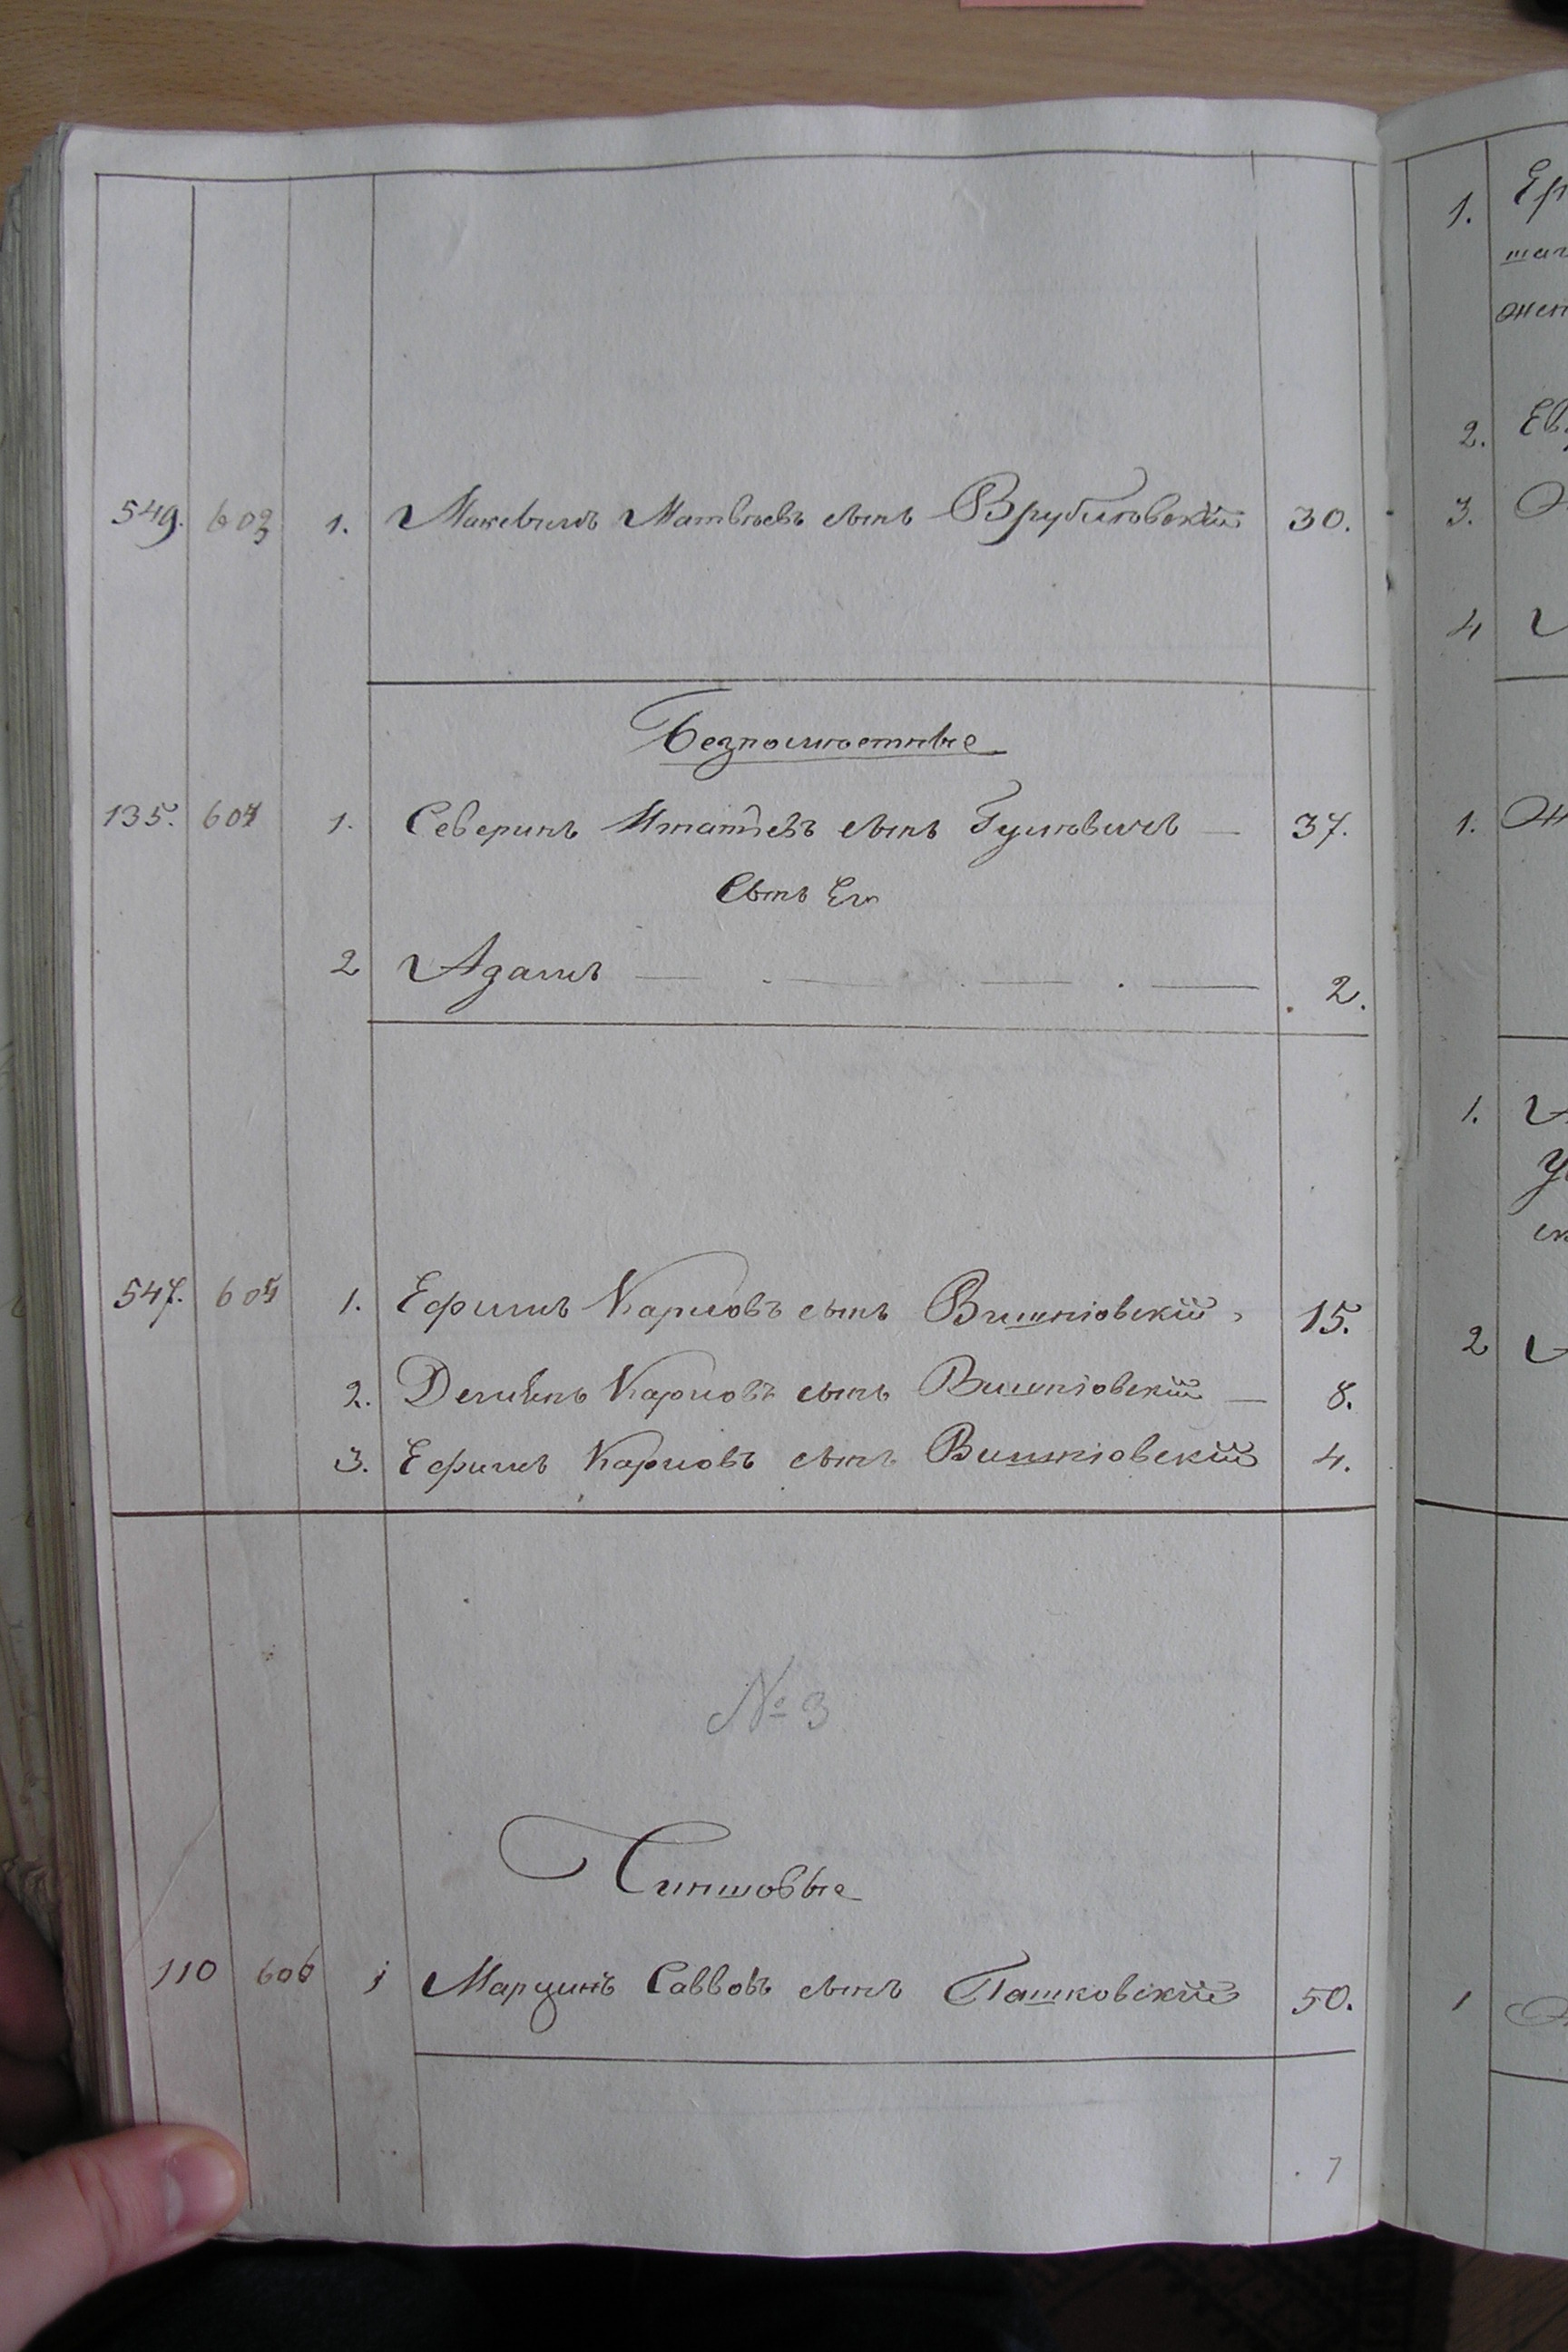 549. 603 1. Максимъ Матвѣевъ сынъ Врублевскій 30.
Безпоместные
135. 604 1. Северинъ Игнатіевъ сынъ Гулевичъ — 37.
Сынъ Его
2 Адамъ — — — — 2.
547. 605 1. Ефимъ Карповъ сынъ Вишнiовскій 15.
2. Демьянъ Карповъ сынъ Вишнiовскій — 8.
3. Ефимъ Карповъ сынъ Вишнiовскій 4.
№ 3
Чиншовые
110 606 1 Марцинъ Саввовъ сынъ Пашковскій 50.
7
1. Ер
2. Ев
3.
4
1.
1.
2
1